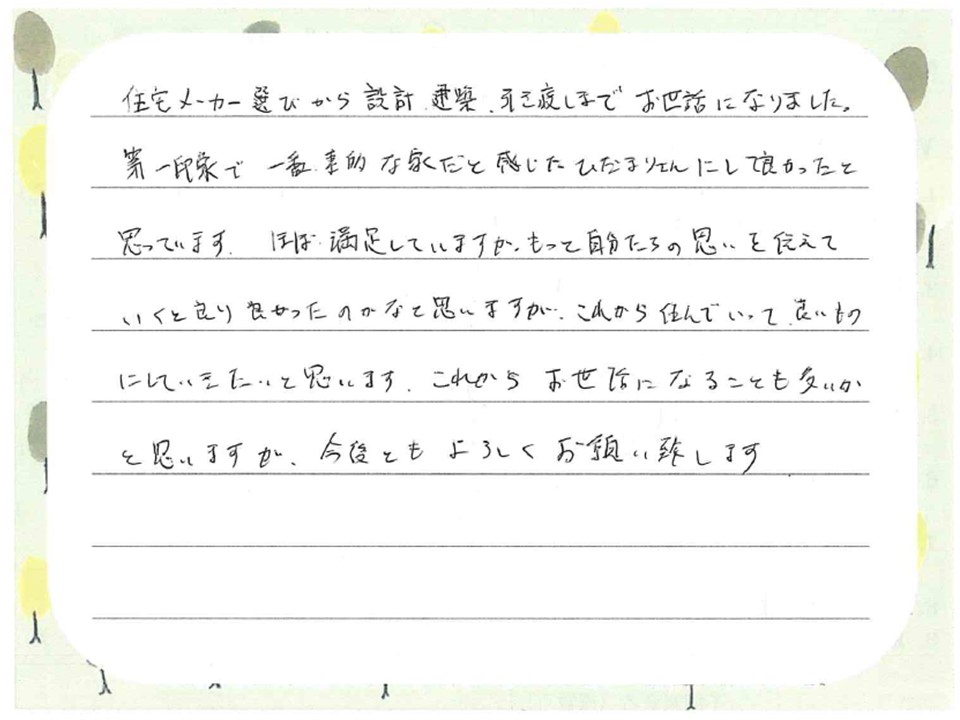 住宅メーカー選びから設計、建築、引き渡しまでお世話になりました。
第一印象で一番素的な家だと感じたひだまりさんにして良かったと
思っています。ほぼ満足していますが、もっと自分たちの思いを伝えて
いくと良り良かったのかなと思いますが、これから住んでいって良いもの
にしていきたいと思います。これからお世話になることも多いか
と思いますが、今後ともよろしくお願い致します